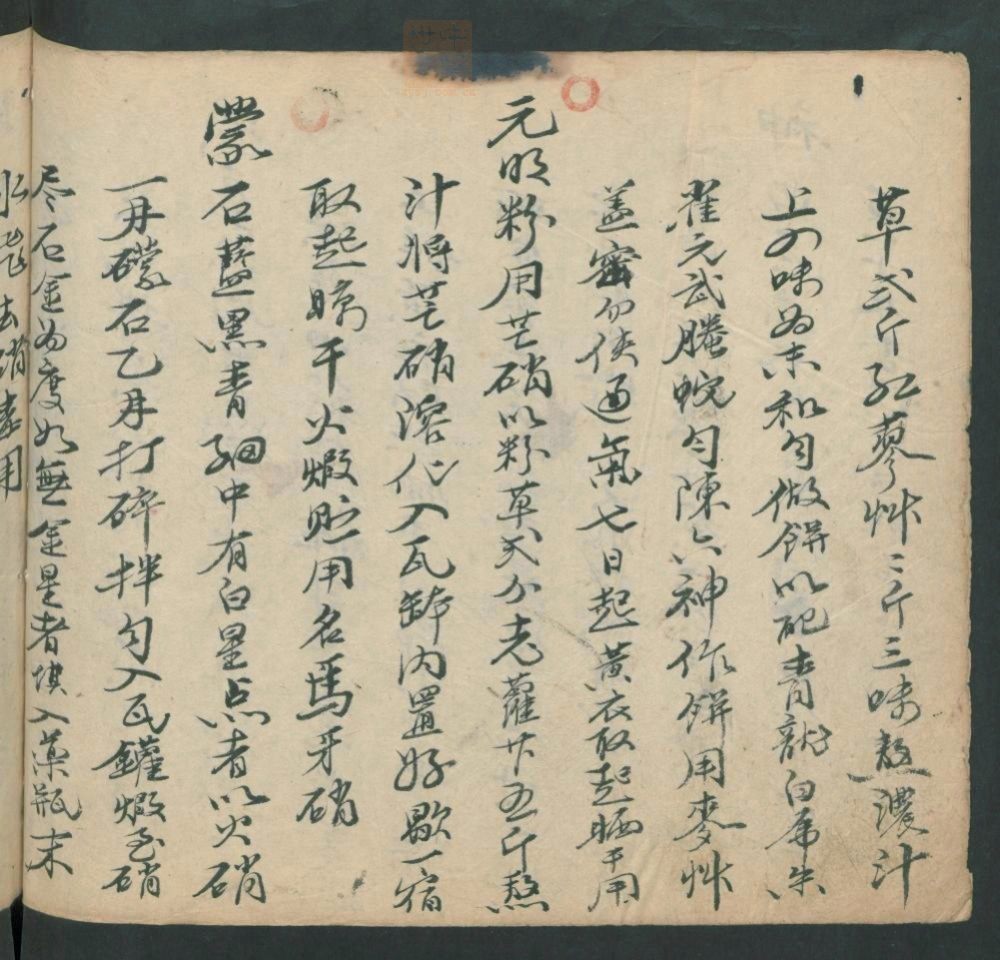 草弍斤紅蓼艸二斤三味熬濃汁
上四味為末和勻做餅以配青龍白虎朱
雀元武螣蛇勾陳六神作餅用麥艸
蓋蜜勿使通氣七日起黃衣取起晒干用
元明粉用芒硝以粉草 老蘿卜五斤熬
汁將芒硝溶化入瓦缽內置好歇一宿
取起晾干火煅 用名馬牙硝
蒙石藍黑青 中有白星点者以火硝
一 礞石乙 打碎拌勻入瓦罐煅至硝
尽石金為度如無金星者填入藥瓶末
水飛去硝 用